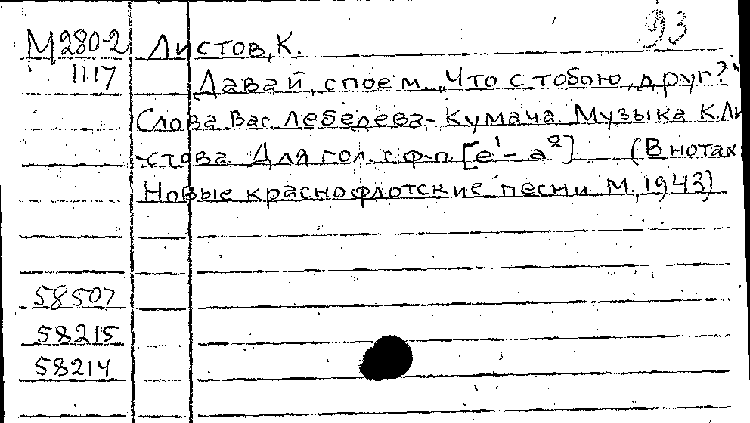 93
М280-2 Листов, К.
1117 Давай, споем „Что с тобою, друг?"
Слова Вас. Лебедева-Кумача Музыка К.Ли
стова. Для гол. с ф-п. [e¹-a²] (В нотах
Новые краснофлотские песни М., 1943)
58507
58215
58214